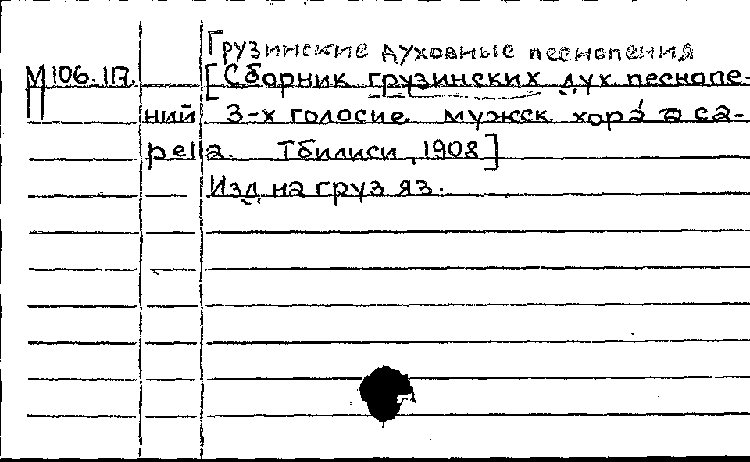 Грузинские духовные песнопения
М 106.117. [Сборник грузинских дух песнопе-
ний 3-х голосие мужск хора a ca-
pella Тбилиси, 1908]
Изд. на груз яз.